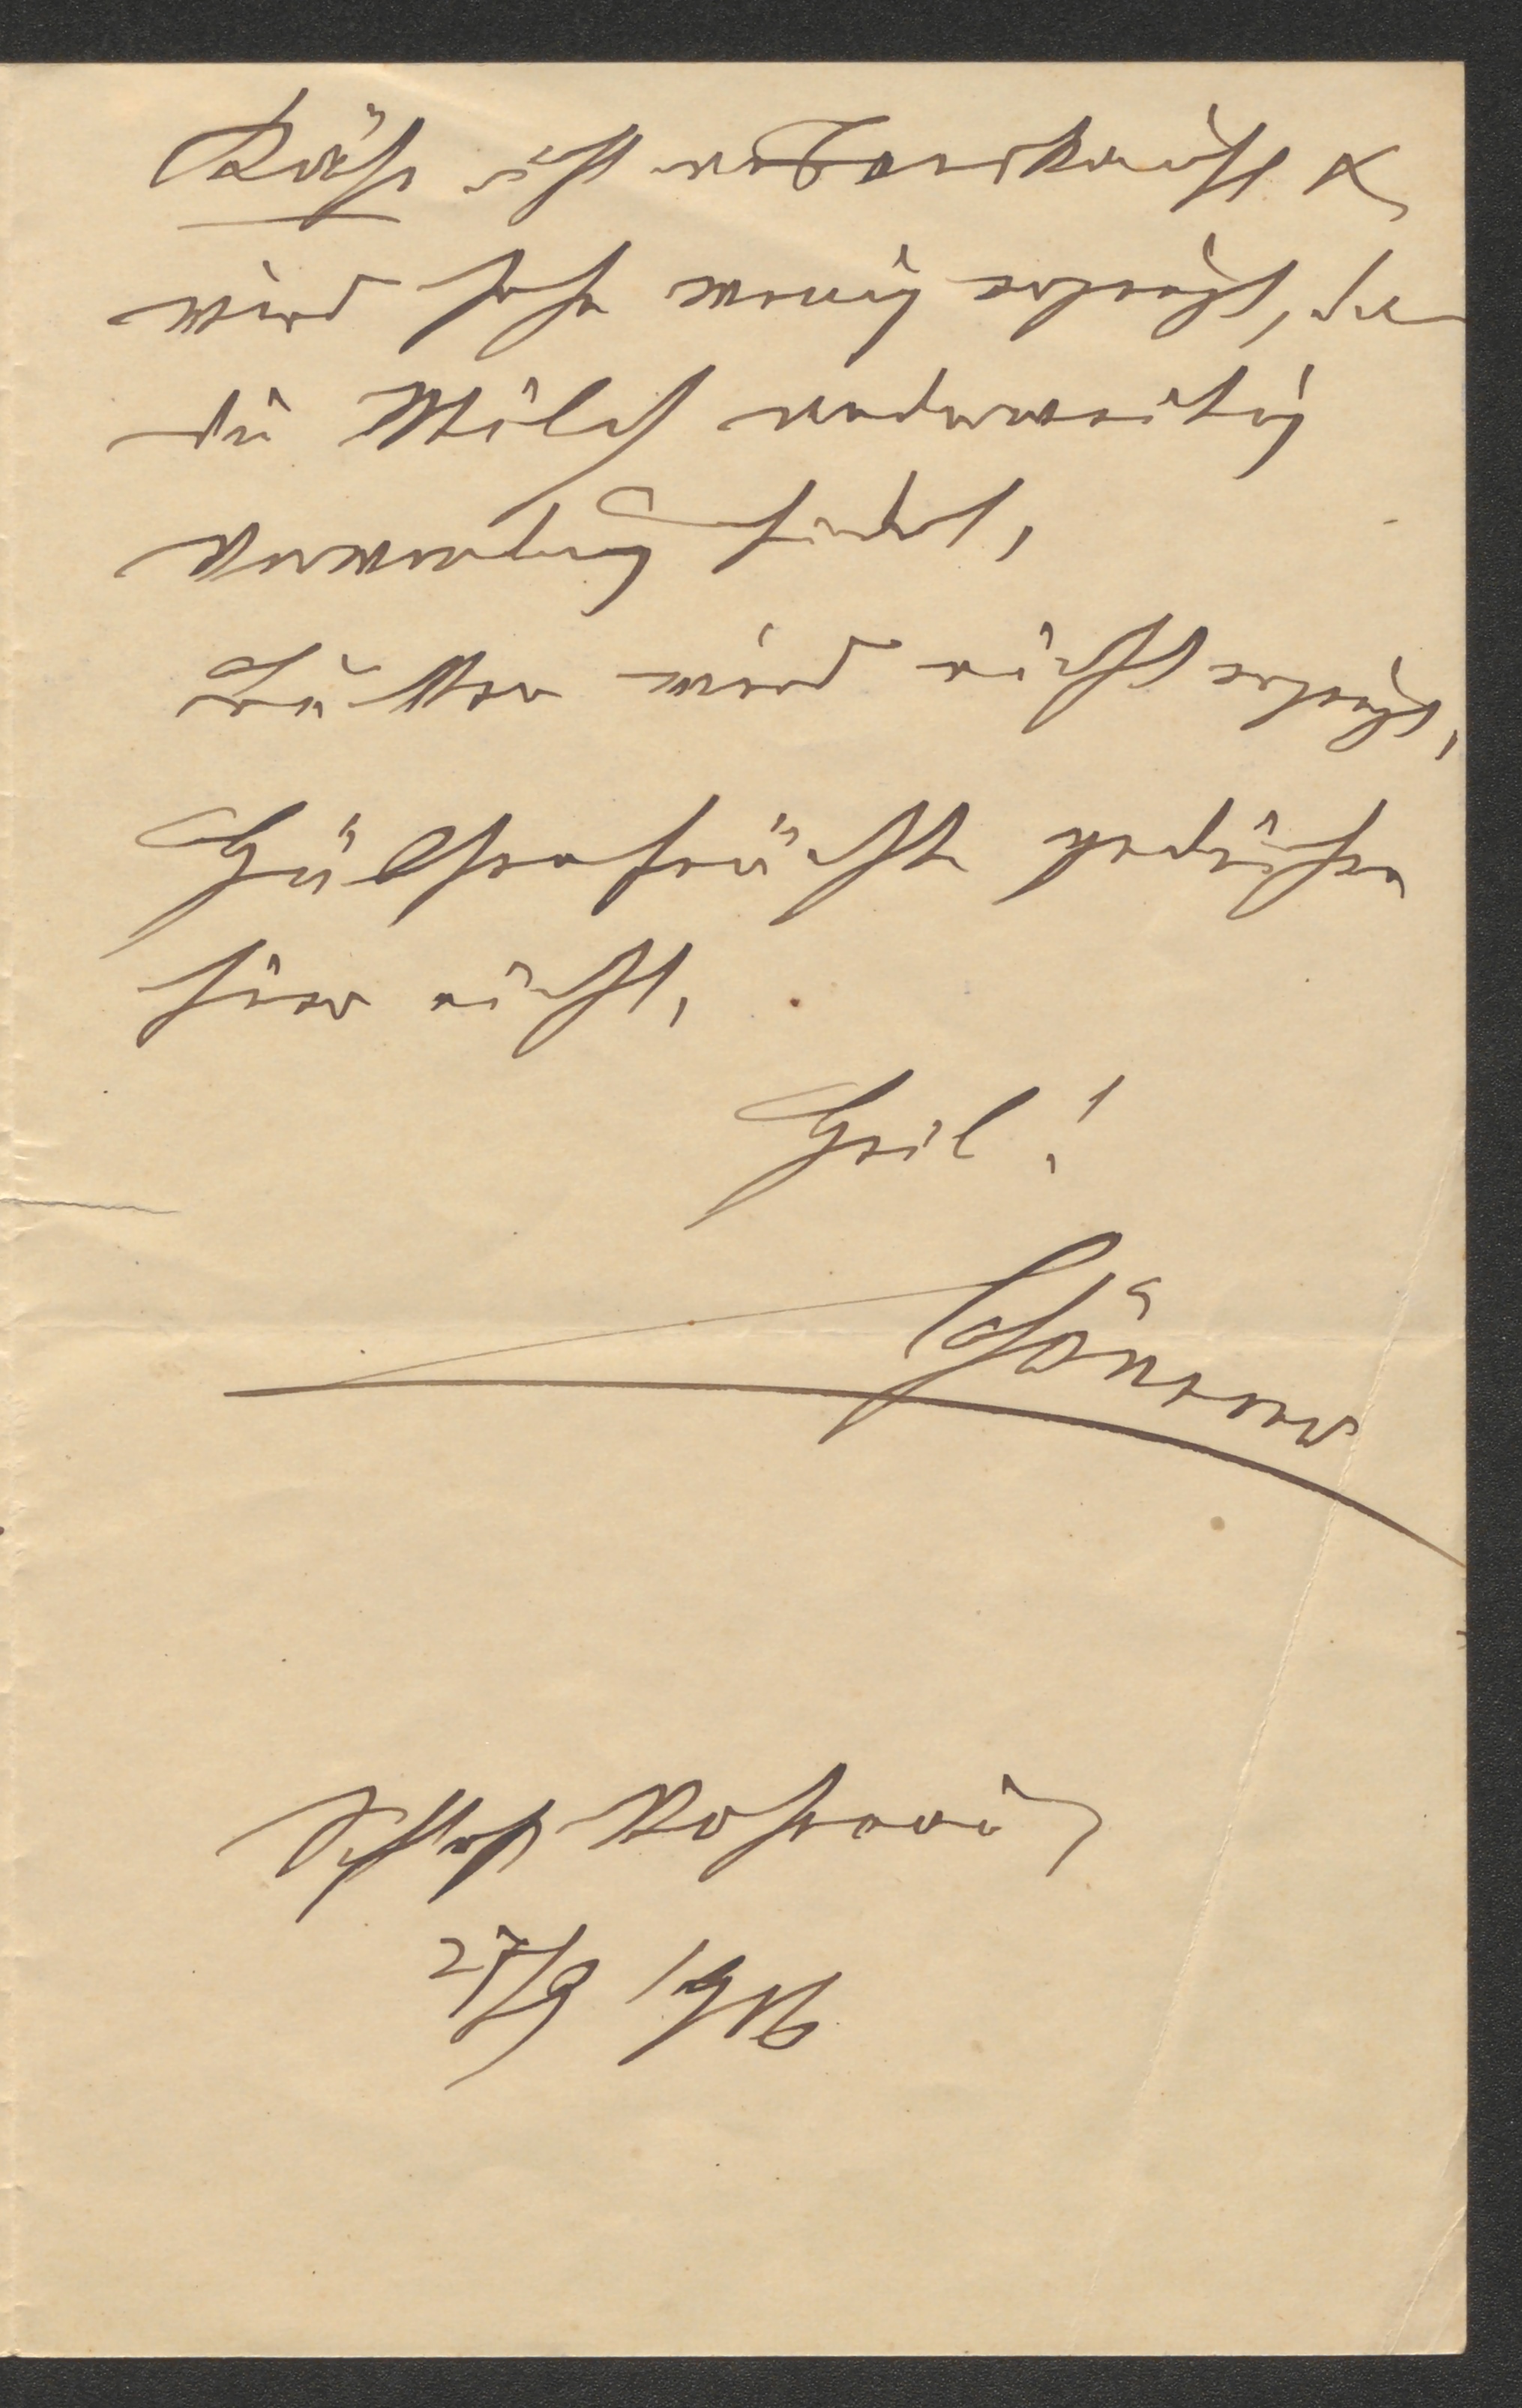 Käse ist ausverkauft &
wird sehr wenig erzeugt, da
die Milch anderweitig
Verwendung findet,
Butter wird nicht erzeugt,
Hülsenfrüchte gedeihen
hier nicht,
Heil!
Schönerer
Schloß Rosenau
27/9 1916